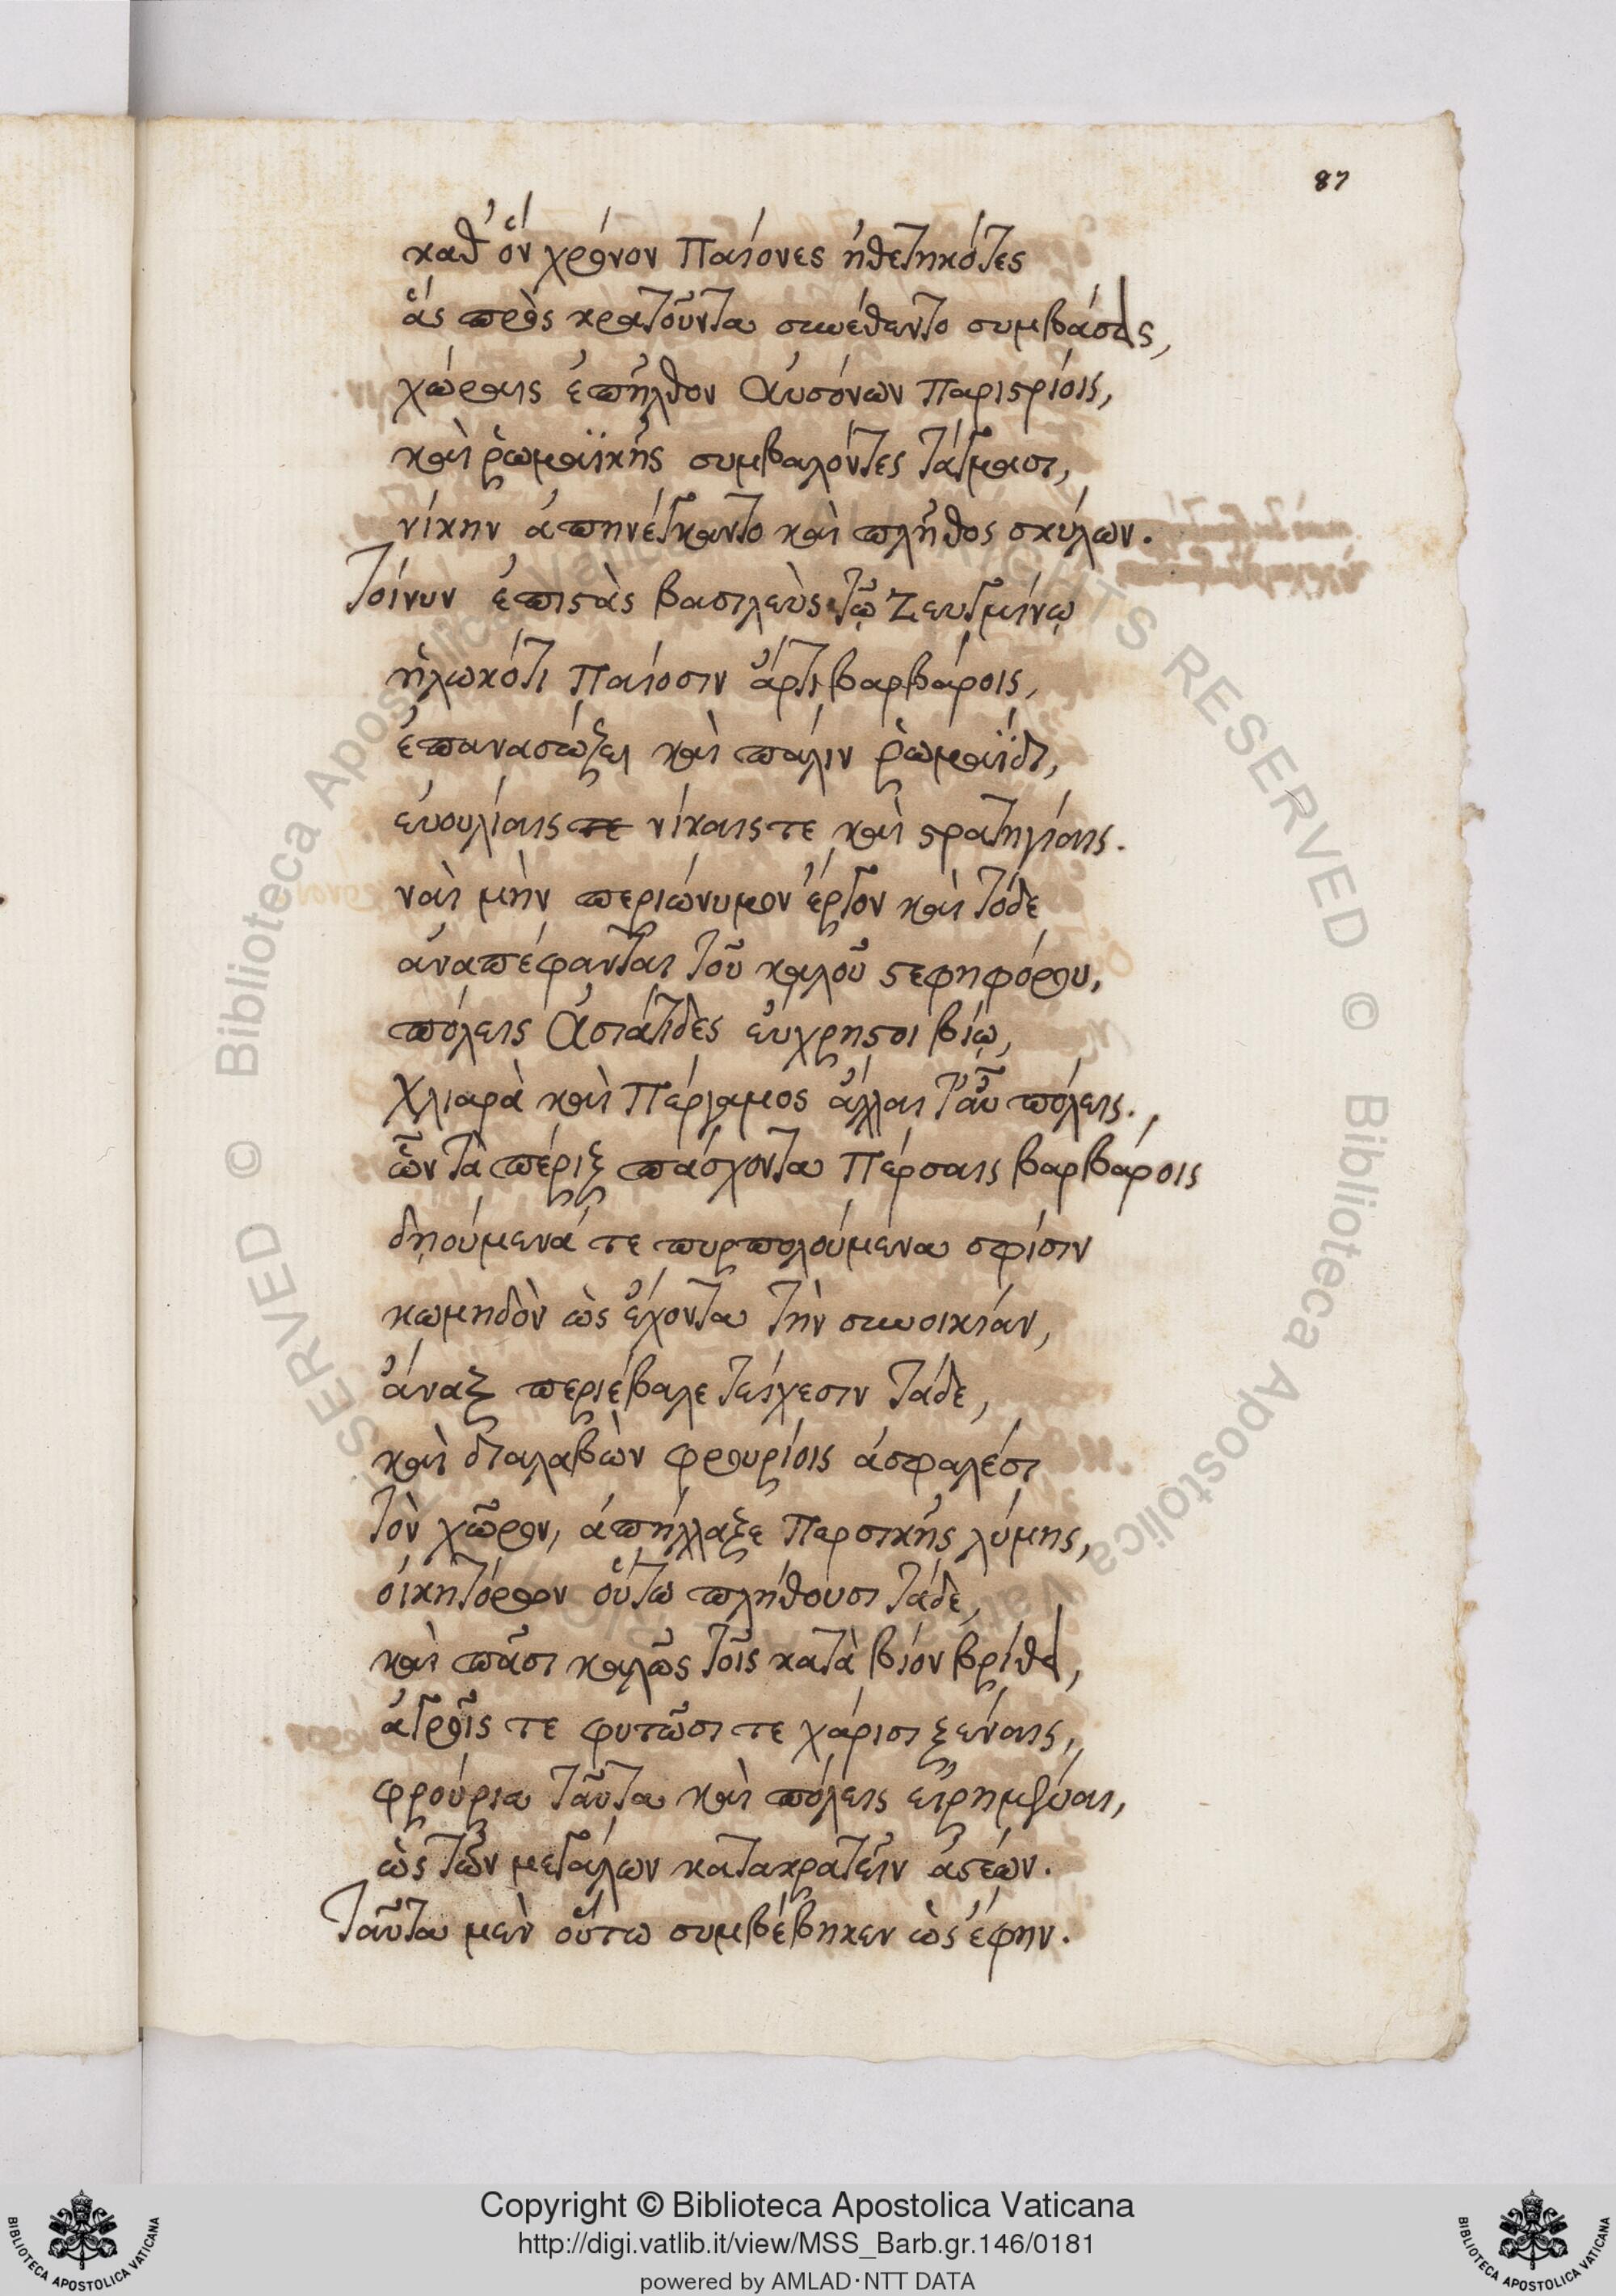 87
καθ' ὃν χρόνον Παίονες ἠθετηκότες
ἃς πρὸς κρατοῦντα συνέθεντο συμβάσεις,
χώραις ἐπῆλθον Αὐσόνων Παριστρίοις,
καὶ ῥωμαϊκῆς συμβαλόντες τάγμασι,
νίκην ἀπηνέγκαντο καὶ πλῆθος σκύλων.
Τοίνυν ἐπιστὰς βασιλεὺς τῷ Ζευγμίνῳ
ἡλωκότι Παίοσιν ἄρτι βαρβάροις,
ἐπανασώζει καὶ πάλιν ῥωμαΐδι,
εὐουλίαις νίκαις τε καὶ στρατηγίαις.
ναὶ μὴν περιώνυμον ἔργον καὶ τόδε
ἀναπέφανται τοῦ καλοῦ στεφηφόρου,
πόλεις Ἀσιάτιδες εὔχρηστοι βίῳ,
Χλιαρὰ καὶ Πέργαμος ἄλλαι τ' αὖ πόλεις.,
ὧν τὰ πέριξ πάσχοντα Πέρσαις βαρβάροις
δῃούμενά τε πυρπολούμενα σφίσιν
κωμηδὸν ὡς ἔχοντα τὴν συνοικίαν,
ἄναξ περιέβαλε τείχεσιν τάδε,
καὶ διαλαβὼν φρουρίοις ἀσφαλέσι
τὸν χῶρον, ἀπήλλαξε Περσικῆς λύμης,
οἰκητόρων οὕτω πλήθουσι τάδε,
καὶ πᾶσι καλῶς τοῖς κατὰ βίον βρίθει,
ἀγροῖς τε φυτῶσι τε χάρισι ξέναις,
φρούρια ταῦτα καὶ πόλεις εἰρημέναι,
ὡς τῶν μεγάλων κατακρατεῖν ἀστέων.
Ταῦτα μὲν οὕτω συμβέβηκεν ὡς ἔφην.
Copyright © Biblioteca Apostolica Vaticana
http://digi.vatlib.it/view/MSS_Barb.gr.146/0181
powered by AMLAD·NTT DATA
BIBLIOTECA APOSTOLICA VATICANA
BIBLIOTECA APOSTOLICA VATICANA